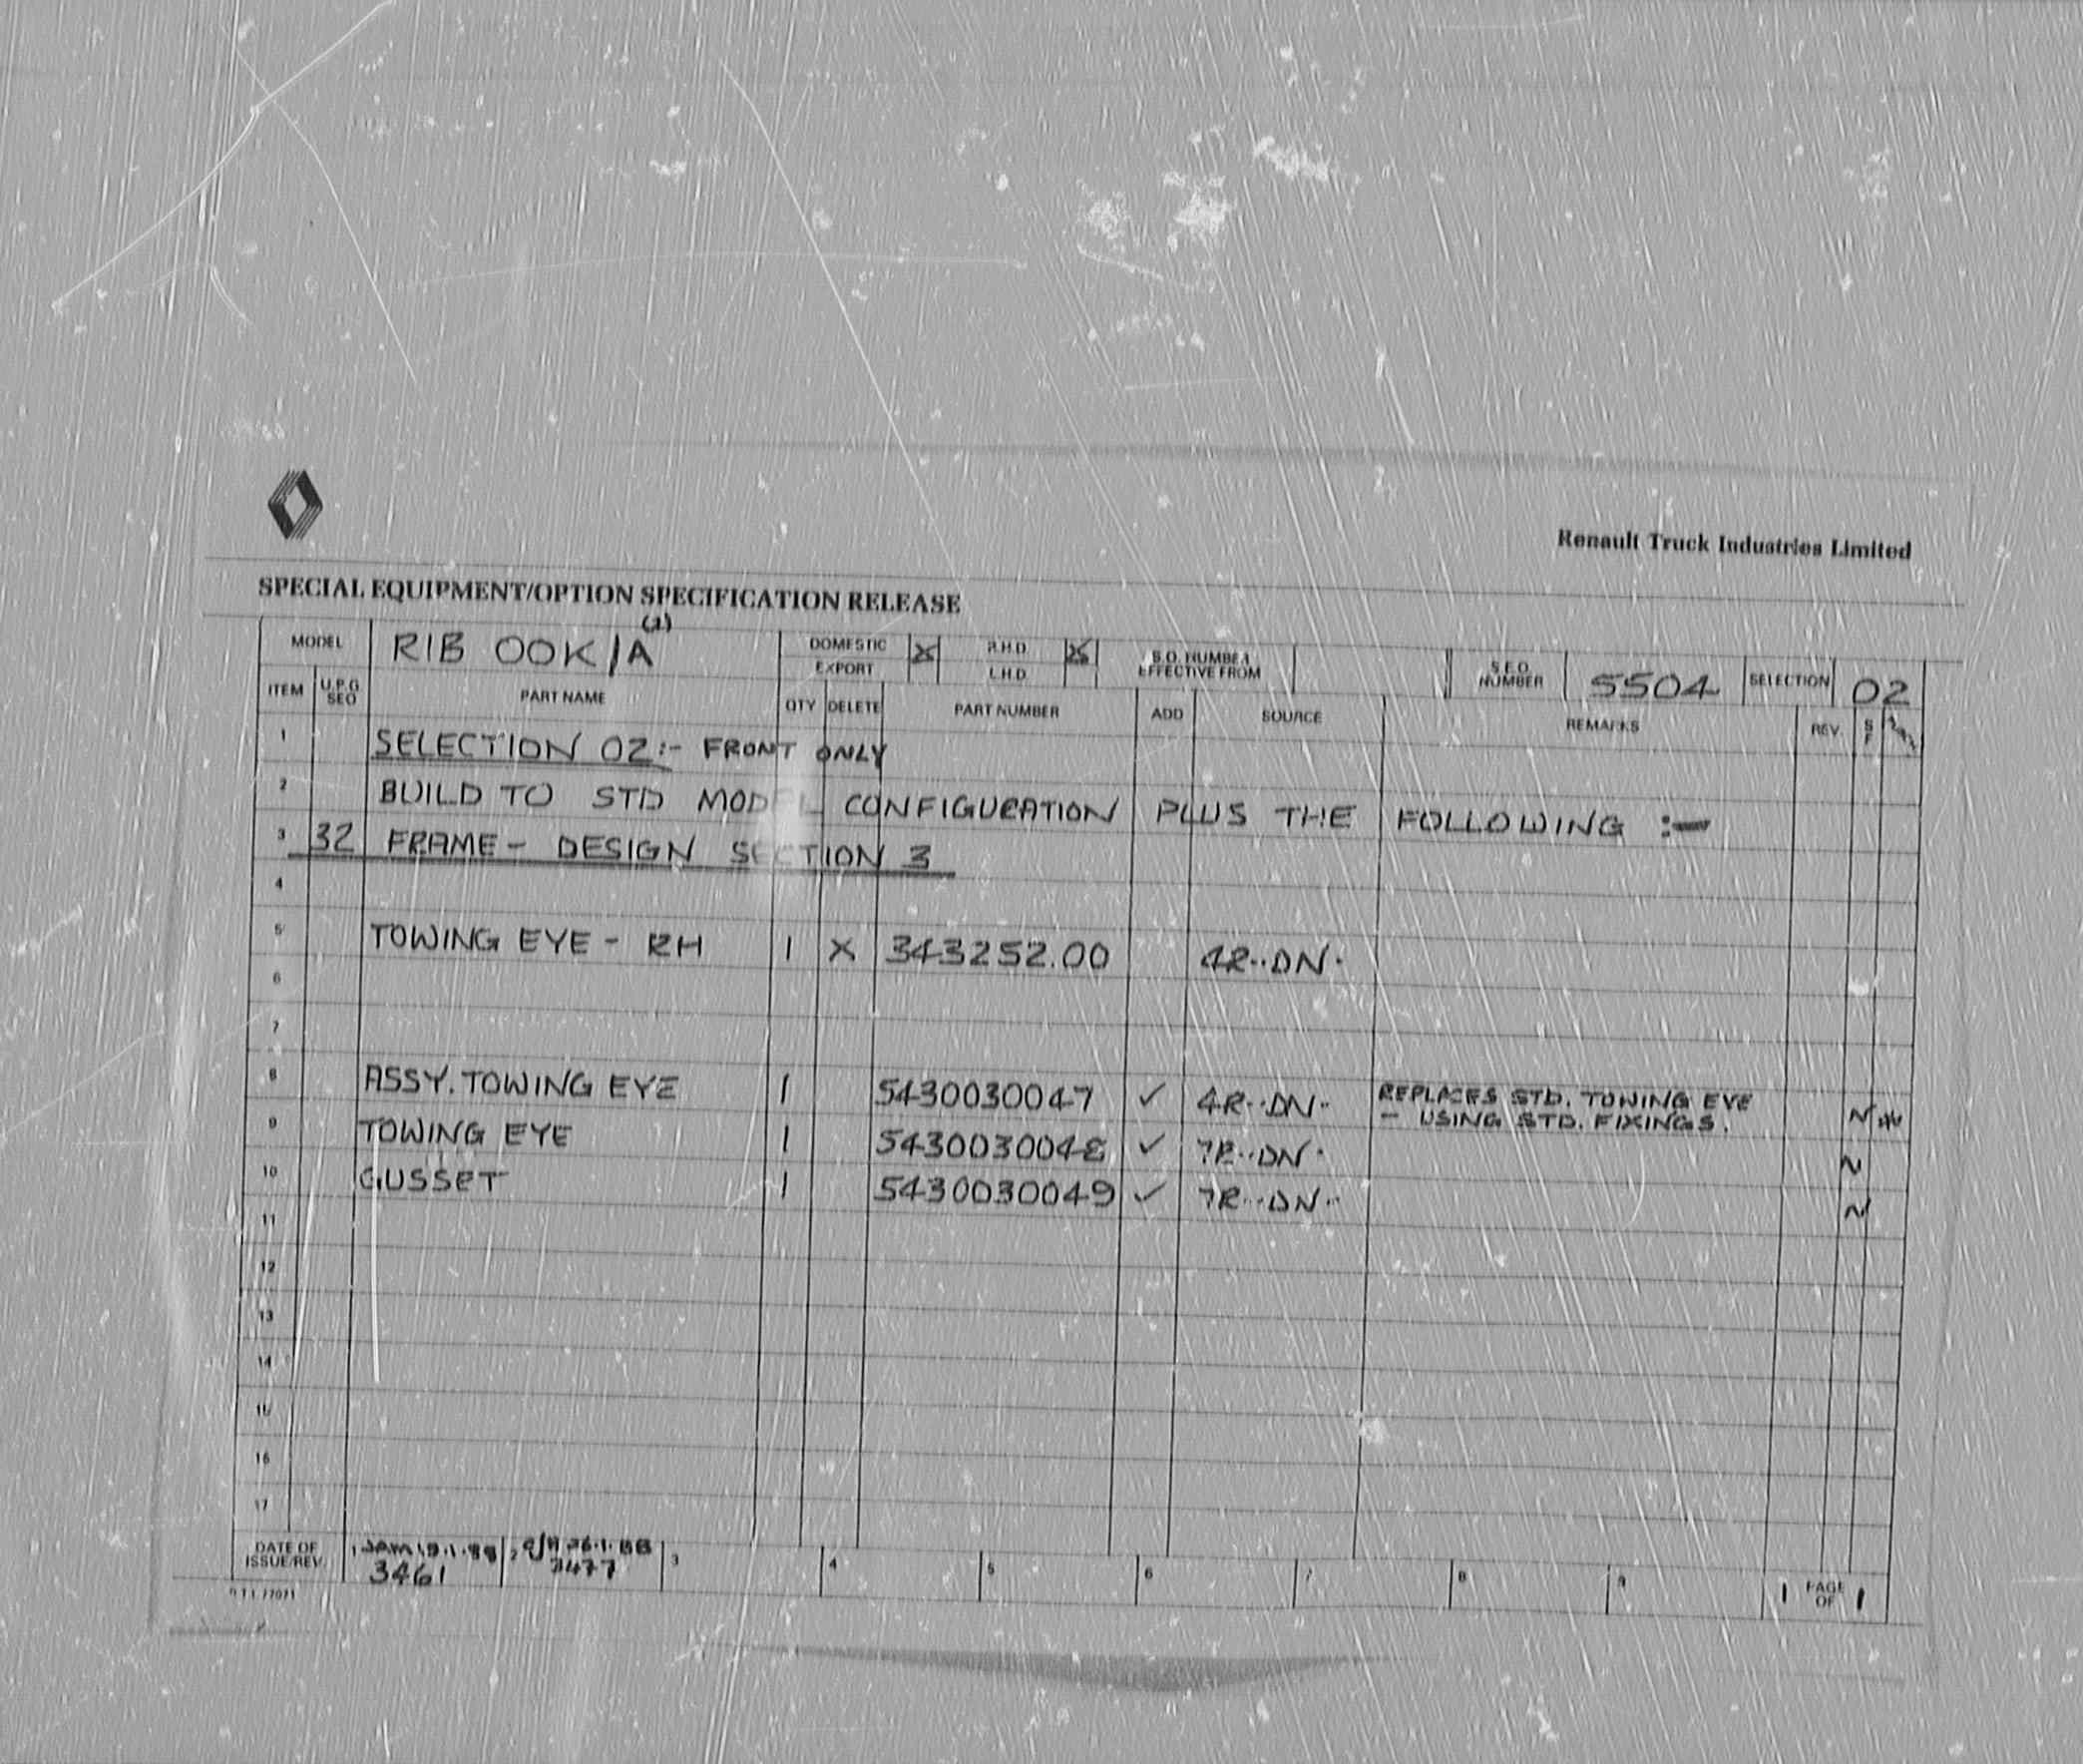 Renault Truck Industries Limited
SPECIAL EQUIPMENT/OPTION SPECIFICATION RELEASE
MODEL RIB 00K/A (2) DOMESTIC X R.H.D. X S.O. NUMBER S.E.O. NUMBER 5504 SELECTION 02
EXPORT L.H.D. EFFECTIVE FROM
ITEM U.P.G SEQ PART NAME QTY DELETE PART NUMBER ADD SOURCE REMARKS REV. S F
1 SELECTION 02:- FRONT ONLY
2 BUILD TO STD MODEL CONFIGURATION PLUS THE FOLLOWING :-
3 32 FRAME - DESIGN SECTION 3
4
5 TOWING EYE - RH 1 X 343252.00 4R··DN·
6
7
8 ASSY. TOWING EYE 1 5430030047 ✓ 4R··DN· REPLACES STD. TOWING EYE
- USING STD. FIXINGS. N *
9 TOWING EYE 1 5430030048 ✓ 7R··DN· N
10 GUSSET 1 5430030049 ✓ 7R··DN·· N
11
12
13
14
15
16
17
DATE OF ISSUE/REV. 1 19.1.88 2 26.1.88 3 4 5 6 7 8 9 1 PAGE OF 1
3461 3477